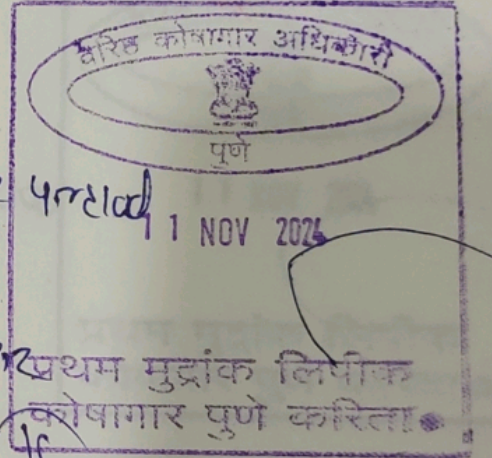 वरिष्ठ कोषागार अधिकारी
पुणे
11 NOV 2024
प्रथम मुद्रांक लिपीक
कोषागार पुणे करिता